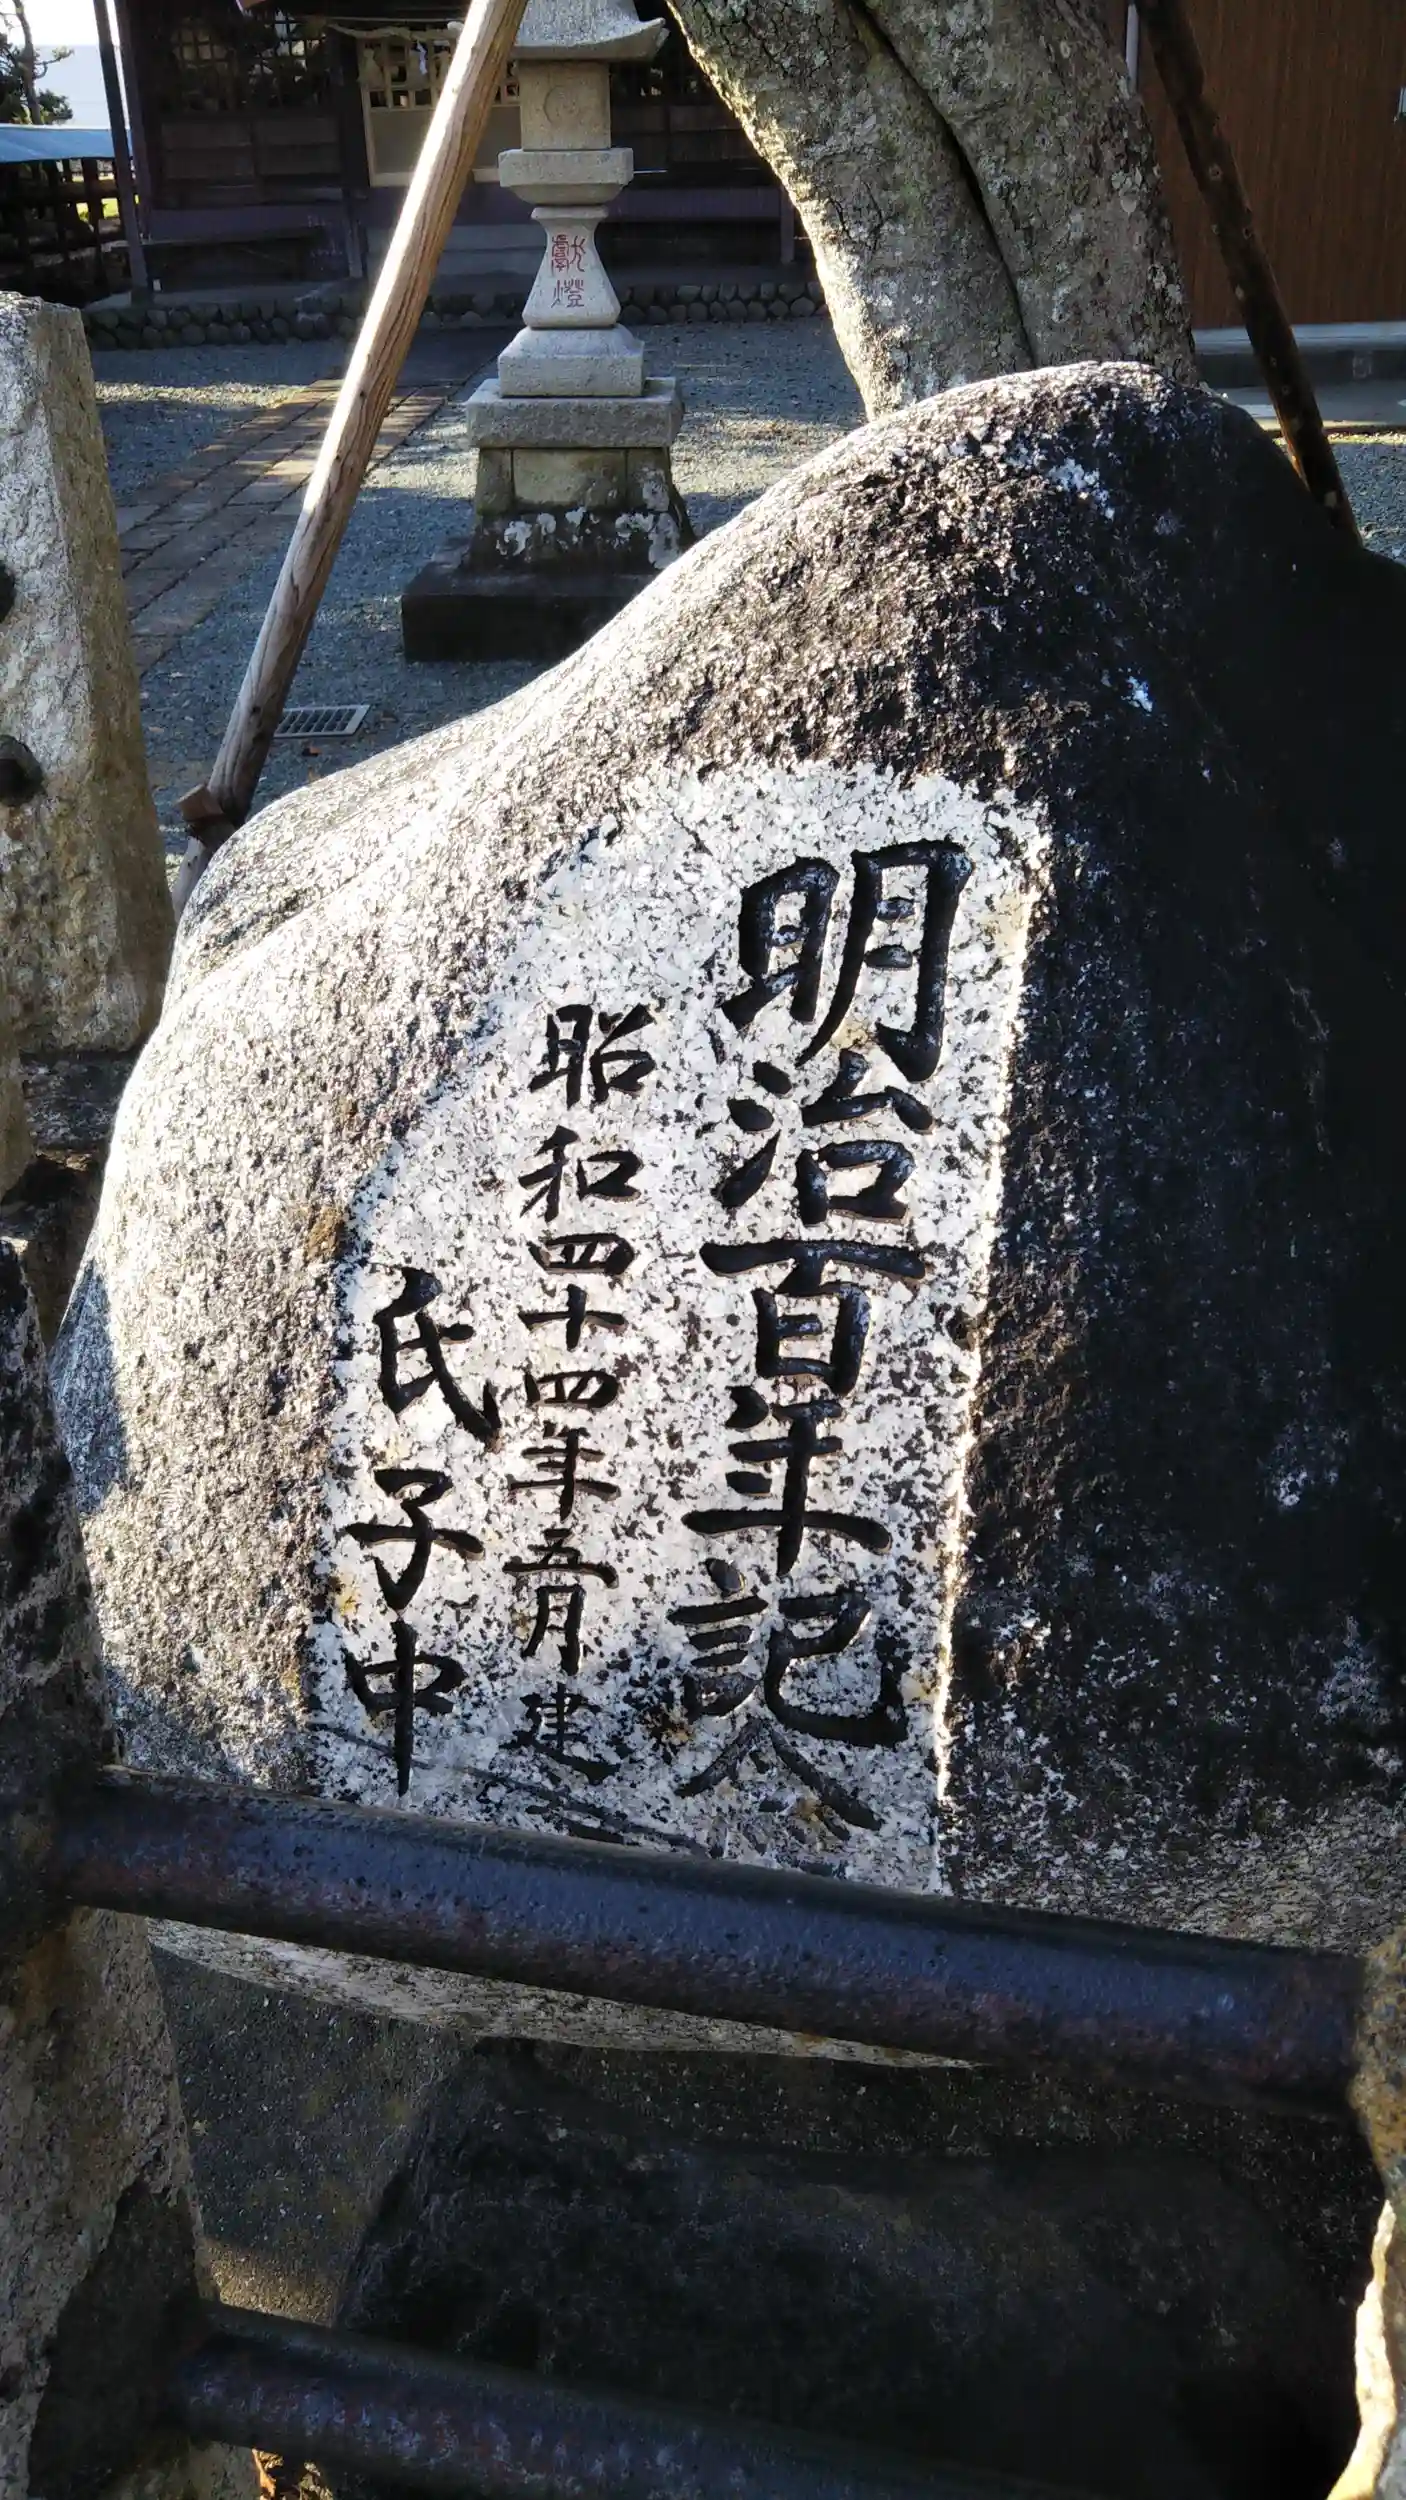 明治百年記
昭和四十四年五月建
氏子中
献燈